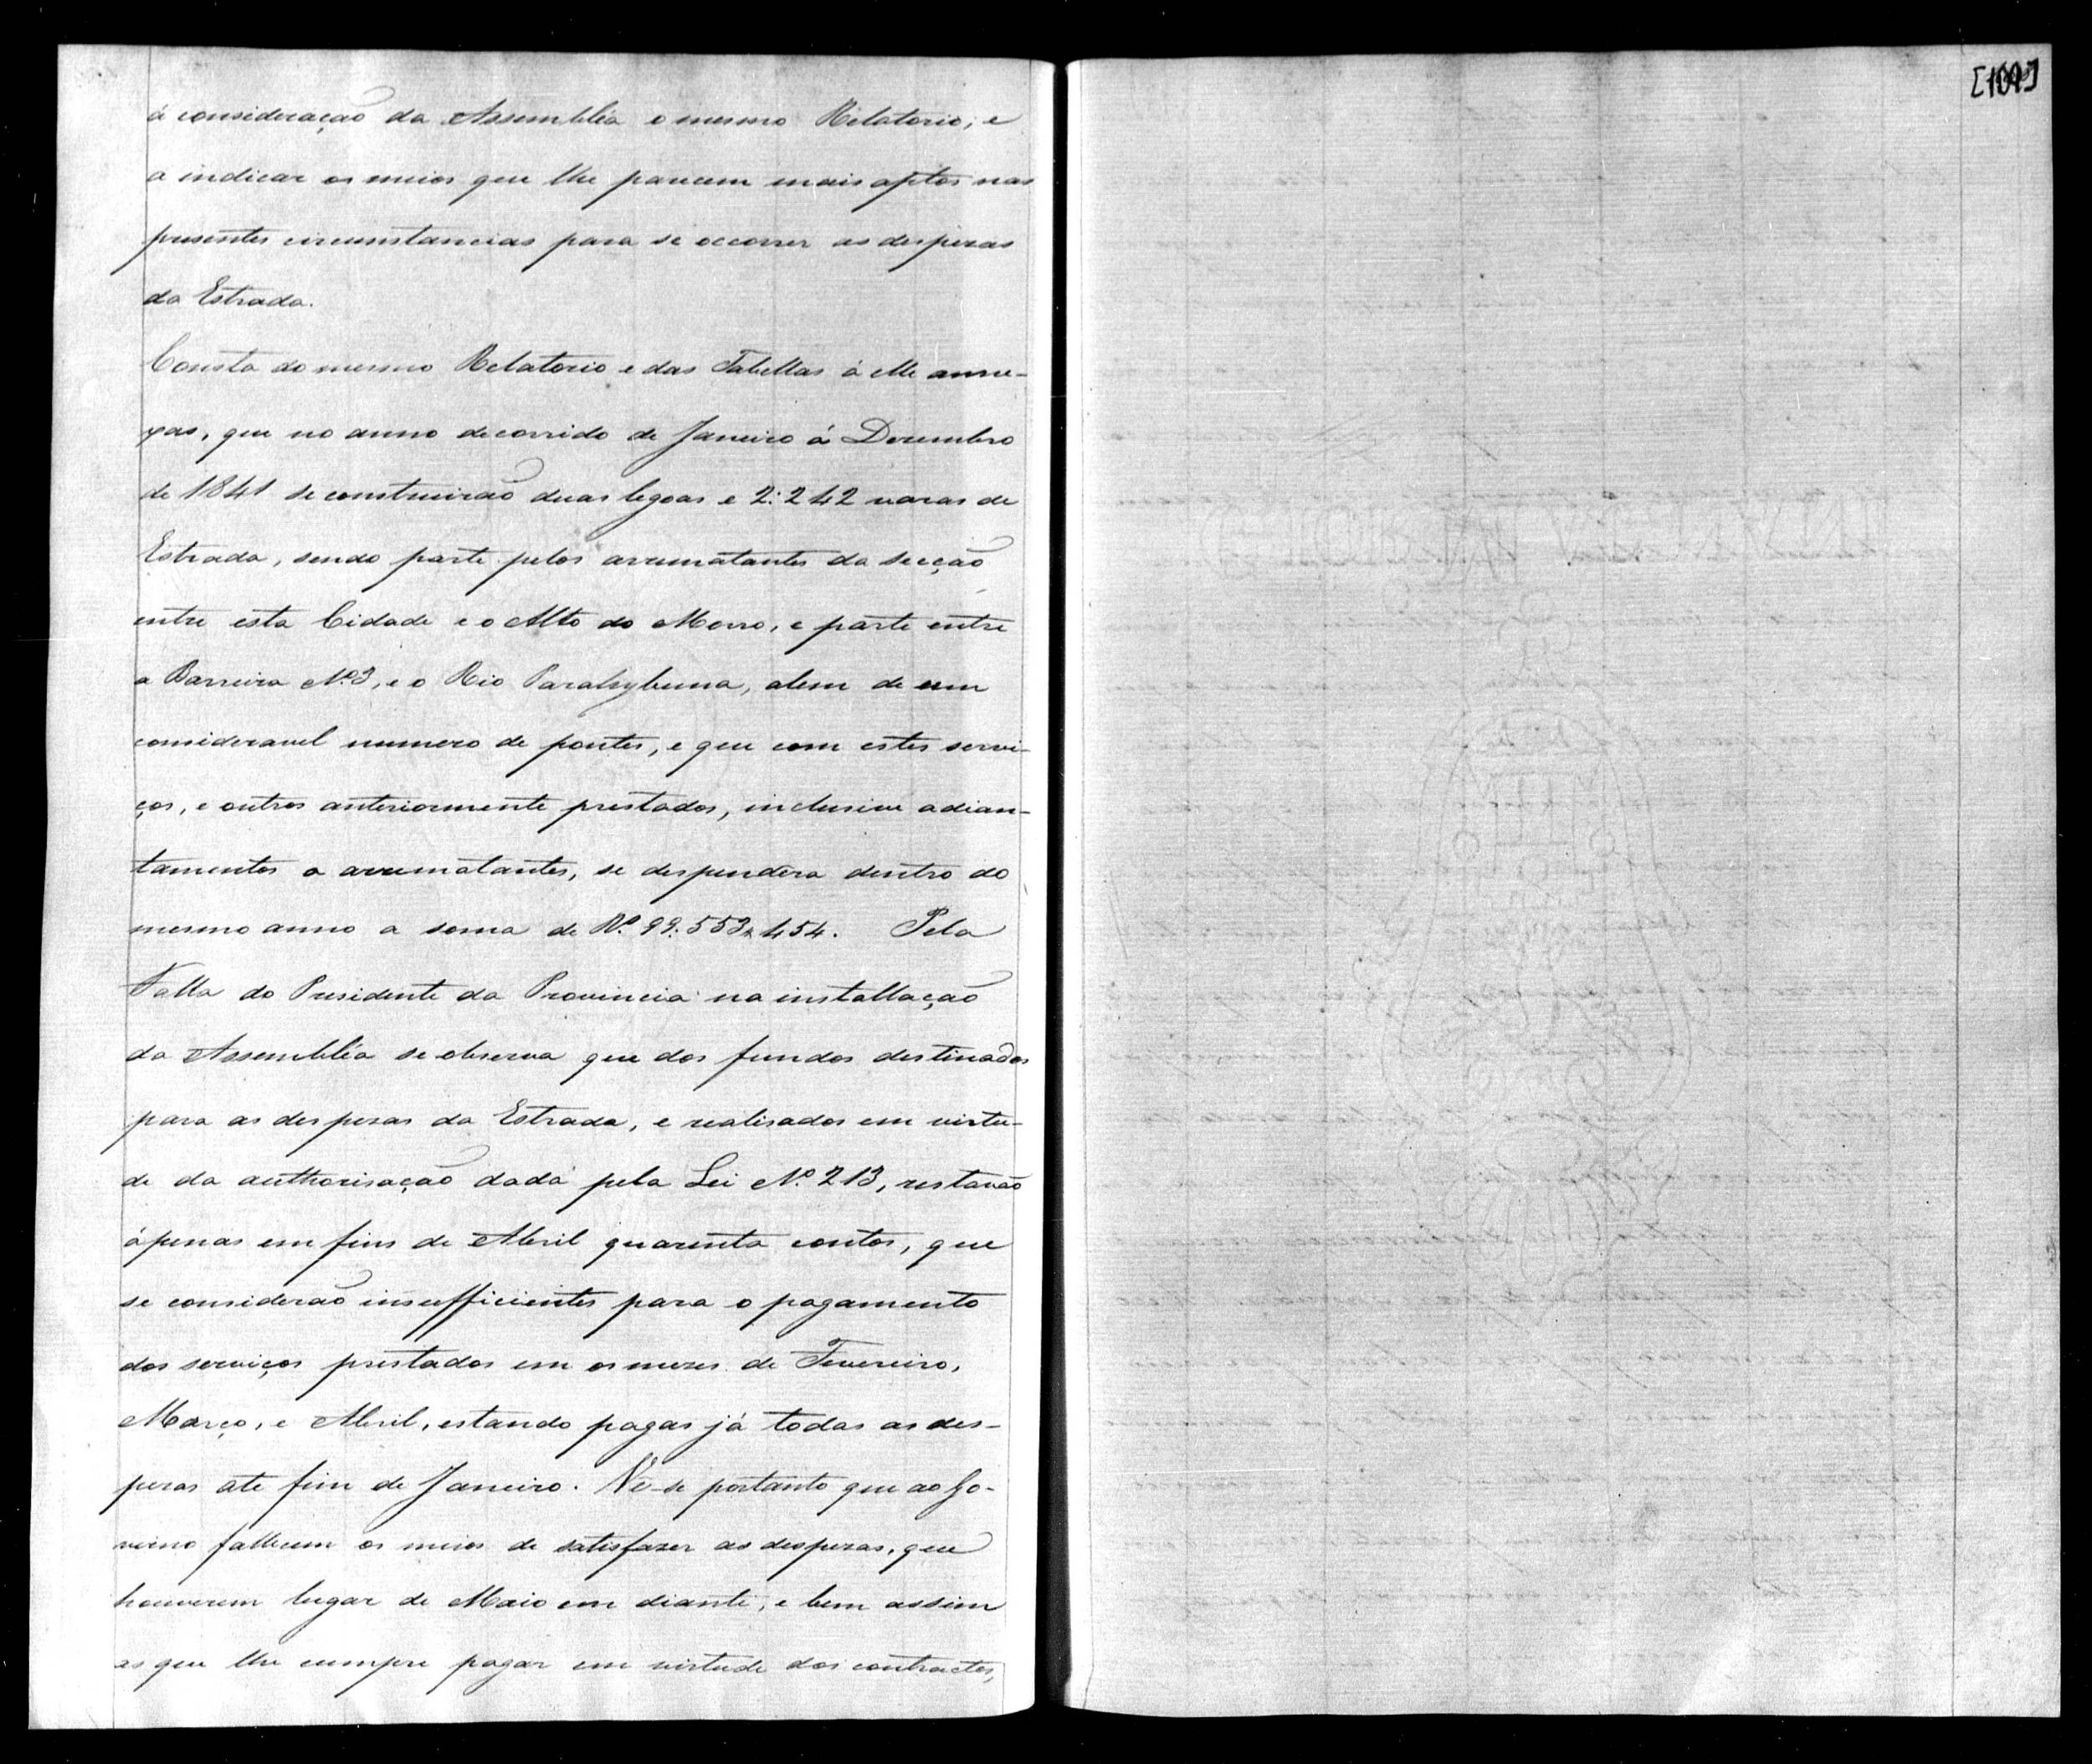 á consideração da Assemblea o mesmo Relatorio, e
a indicar os meios que lhe parecem mais aptos nas
presentes circunstancias para se occorrer as despezas
da Estrada.
Consta do mesmo Relatorio e das Tabellas á elle anne-
xas, que no anno decorrido de Janeiro á Dezembro
de 1841 se construirão duas legoas e 2:242 varas de
Estrada, sendo parte pelos arrematantes da secção
entre esta Cidade e o Alto do Morro, e parte entre
a Barreira Nº3, e o Rio Parahybuna, alem de um
consideravel numero de pontes, e que com estes servi-
ços, e outros anteriormente prestados, inclusive adian-
tamentos a arrematantes, se despendera dentro do
mesmo anno a soma de Rº 99:553$454. Pela
Falla do Presidente da Provincia na installação
da Assembléa se observa que dos fundos destinados
para as despezas da Estrada, e realisados em virtu-
de da authorisação dada pela Lei Nº 213, restavão
ápenas em fins de Abril quarenta contos, que
se considerão insufficientes para o pagamento
dos serviços prestados em os mezes de Fevereiro,
Março, e Abril, estando pagas já todas as des-
pezas ate fim de Janeiro. Vê-se portanto que ao Go-
verno fallecem os meios de satisfazer as despezas, que
houverem lugar de Maio em diante, e bem assim
as que lhe cumpre pagar em virtude dos contractos,